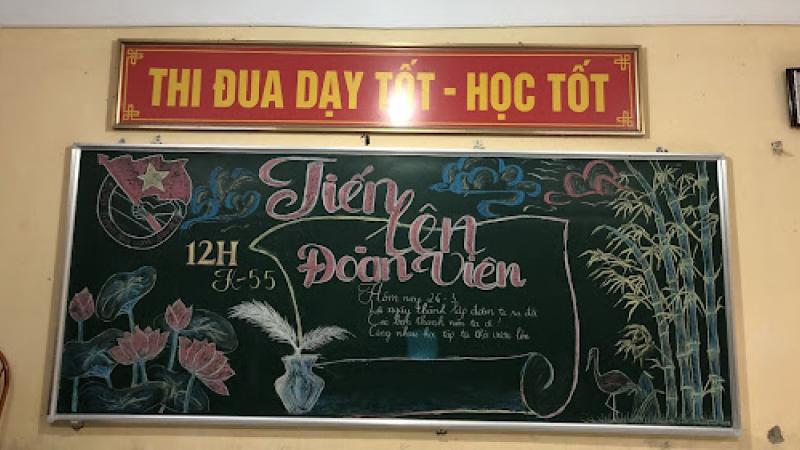 THI ĐUA DẠY TỐT - HỌC TỐT
Tiến
Lên
Đoàn Viên
12H
K-55
Hôm nay 26-3
Là ngày thành lập đoàn ta ra đời
Các bạn thanh niên ta ơi!
Cùng nhau học tập ta thời vươn lên